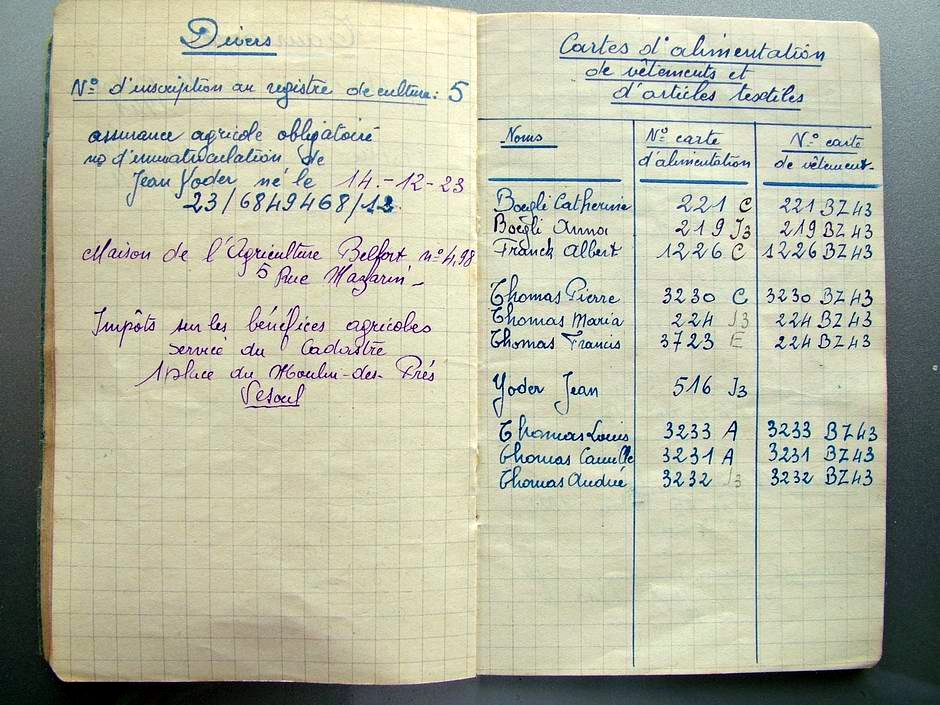 Divers
N° d'inscription au registre de culture: 5
assurance agricole obligatoire
no d'immatriculation de
Jean Yoder né le 14-12-23
23/6849468/13
Maison de l'Agriculture Belfort n° 4,98
5 Rue Mazarin -
Impôts sur les bénéfices agricoles
Service du Cadastre
1 place du Moulin-des-Prés
Vesoul
Cartes d'alimentation
de vêtements et
d'articles textiles
Noms N° carte d'alimentation N° carte de vêtement
Boegli Catherine 221 C 221 BZ43
Boëgli Anna 219 J3 219 BZ43
Franck Albert 1226 C 1226 BZ43
Thomas Pierre 3230 C 3230 BZ43
Thomas Maria 224 J3 224 BZ43
Thomas Francis 3723 E 224 BZ43
Yoder Jean 516 J3
Thomas Louis 3233 A 3233 BZ43
Thomas Camille 3231 A 3231 BZ43
Thomas André 3232 J3 3232 BZ43